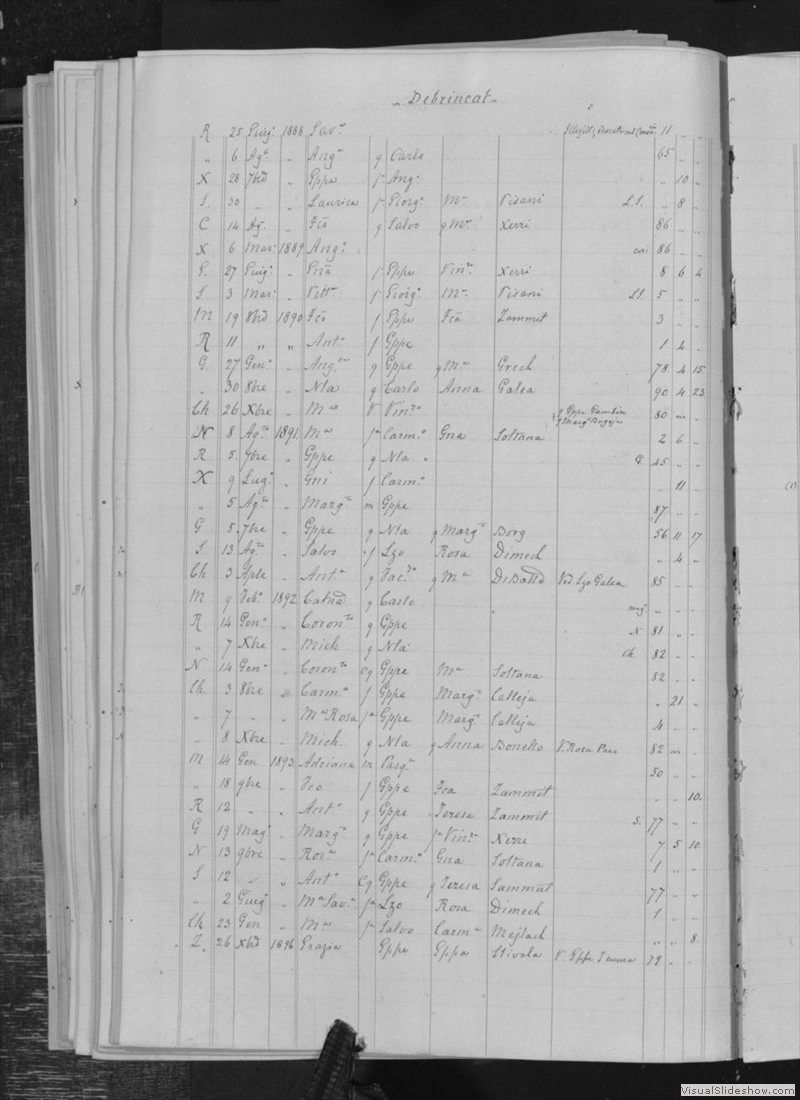 Debrincat
R 25 Giug. 1888 Sav.a 11 " "
" 6 Ag. " Ang.a q Carlo 65 " "
X 28 7bre " Gppa f. Ang. " 10 "
S. 30 " " Laurica f. Giorg. M.a Pisani L.S. " 8 "
C 14 Ag. " Fco q Salvo q M.a Xerri 86 " "
X 6 Mar. 1889 Ang. 86 " "
G. 27 Giug. " Gna f. Gppe Vin.a Xerri 8 6 4
S. 3 Mar. " Vitt.a f. Giorg. M.a Pisani L.S. 5 " "
M 19 8bre 1890 Fco f Gppe Fca Zammit 3 " "
R 11 " " Ant.o f Gppe 1 4 "
G. 27 Gen. " Ang.a q Gppe q M.a Grech 78 4 15
" 30 8bre " Nla q Carlo Anna Galea 90 4 23
Ch 26 Xbre " M.a V Vin.o q Gppe q Marg.a Bugeja 80 "
N 8 Ag. 1891 M.a f. Carm.o Gna Soltana 2 6 "
R 5 7bre " Gppe q Nla 45 " "
X 9 Lug. " Gni f Carm.o " 11 "
" 5 Ag. " Marg.a m Gppe 87 " "
G 5 7bre " Gppe q Nla q Marg.a Borg 56 11 17
S 13 Ag. " Salvo f Lzo Rosa Dimech " 4 "
Ch 3 Aple " Ant.a q M.a DeBatta Ved. Lzo Galea 85 " "
M 9 Feb. 1892 q Carlo " "
R 14 Gen. " Coron.to q Gppe N 81 " "
" 7 Xbre " Mich. q Nla Ch. 82 " "
N 14 Gen. " Coron.to Cq Gppe M.a Soltana 82 " "
Ch. 3 8bre " Carm.o f Gppe Marg.a Calleja " 21 "
" 7 " " M.a Rosa f. Gppe Marg.a Calleja 4 " "
" 8 Xbre " Mich. q Nla q Anna Bonello V. Rosa Pace 82 "
M 14 Gen 1893 Adriana m Pasq. 50 " "
" 18 9bre " Fco f Gppe Fca Zammit " " 10.
R 12 " " Ant.o q Gppe Teresa Zammit S. 77 " "
G 19 Mag. " Marg.a q Gppe f. Vin.a Xerri 7 5 10
N 13 9bre " Ros.a f. Carm.o Gna Soltana 1 " "
S 12 " " Ant.o Cq Gppe q Teresa Sammut 77 " "
" 2 Giug. " M.a Sav.a f. Lzo Rosa Dimech 1 " "
Ch 23 Gen " M.a f. Salvo Carm.a Mejlach " " 8.
Z. 26 Xbre 1896 Grazia Gppe Gppa Stivala V. 72 " "
VisualSlideshow.com